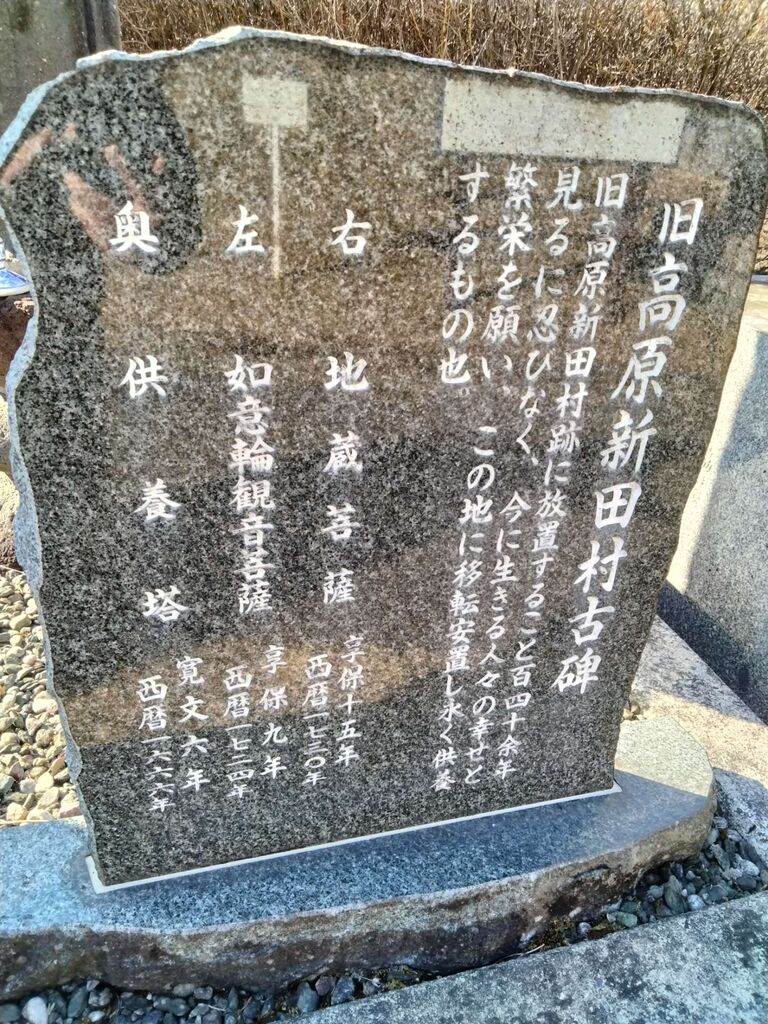 旧高原新田村古碑
旧高原新田村跡に放置すること百四十余年
見るに忍びなく、今に生きる人々の幸せと
繁栄を願い、この地に移転安置し永く供養
するもの也。
右 地蔵菩薩 享保十五年
西暦一七三〇年
左 如意輪観音菩薩 享保九年
西暦一七二四年
奥 供養塔 寛文六年
西暦一六六六年